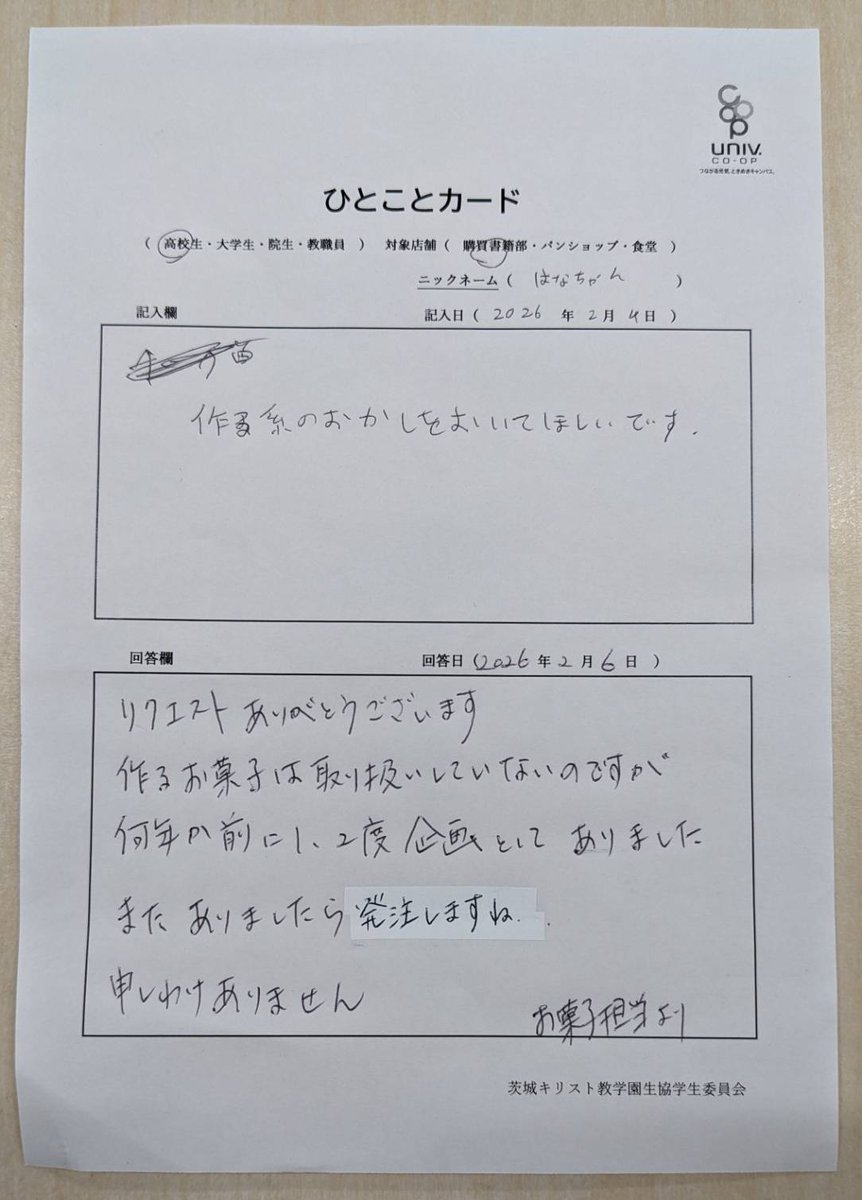 coop
UNIV.
CO-OP
つながる元気、ときめきキャンパス。
ひとことカード
( 高校生・大学生・院生・教職員 ) 対象店舗 ( 購買書籍部・パンショップ・食堂 )
ニックネーム ( はなちゃん )
記入欄 記入日 ( 2026 年 2 月 4 日 )
作る系のおかしをおいてほしいです.
回答欄 回答日 (2026 年 2 月 6 日 )
リクエストありがとうございます
作るお菓子は取り扱いしていないのですが
何年か前に1、2度企画としてありました
またありましたら発注しますね..
申しわけありません
お菓子担当より
茨城キリスト教学園生協学生委員会